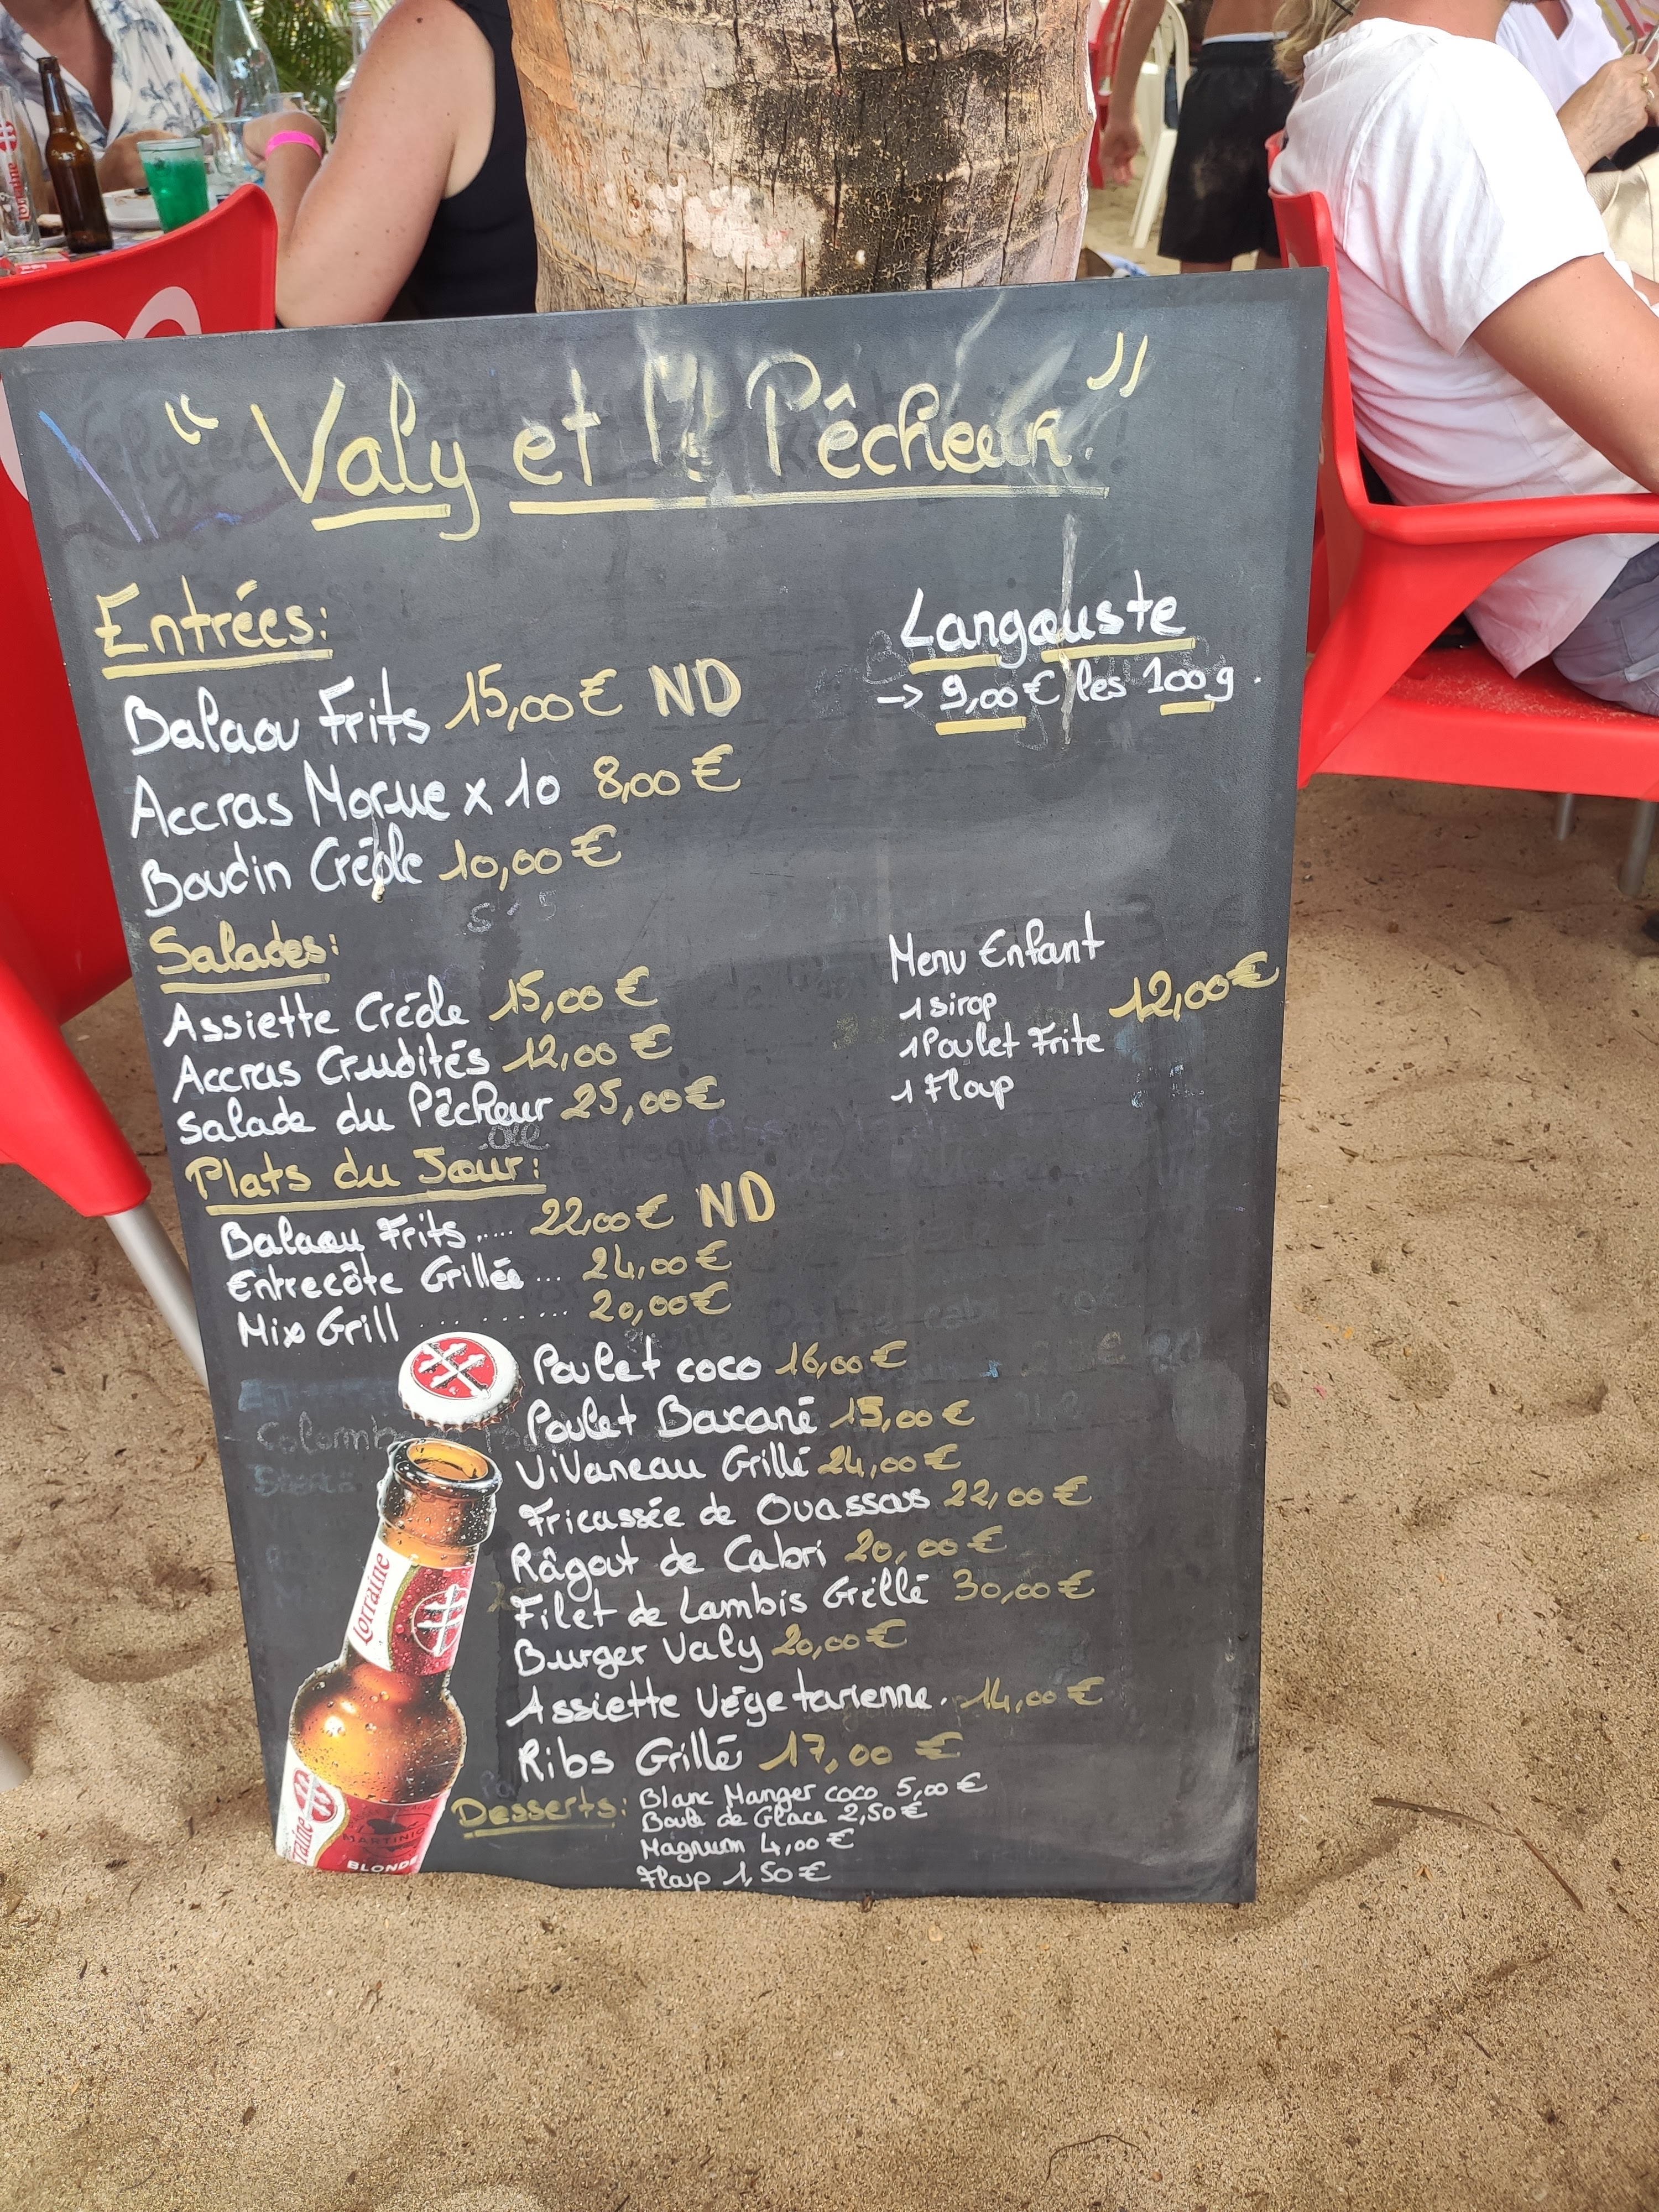 "Valy et le Pêcheur."
Entrées:
Balaou Frits 15,00€ ND
Accras Morue x 10 8,00€
Boudin Créole 10,00€
Langouste
-> 9,00€ les 100g.
Salades:
Assiette Créole 15,00€
Accras Crudités 12,00€
Salade du Pêcheur 25,00€
Menu Enfant
1 sirop
1 Poulet Frite 12,00€
1 Floup
Plats du Jour:
Balaou Frits ..... 22,00€ ND
Entrecôte Grillée ... 24,00€
Mix Grill ......... 20,00€
Poulet coco 16,00€
Poulet Bacané 15,00€
ViVaneau Grillé 24,00€
Fricassée de Ouassous 22,00€
Râgout de Cabri 20,00€
Filet de Lambis Grillé 30,00€
Burger Valy 20,00€
Assiette Végetarienne. 14,00€
Ribs Grillé 17,00€
Desserts: Blanc Manger coco 5,00€
Boule de Glace 2,50€
Magnum 4,00€
Floup 1,50€
Lorraine
MARTINIQ
BLONDE